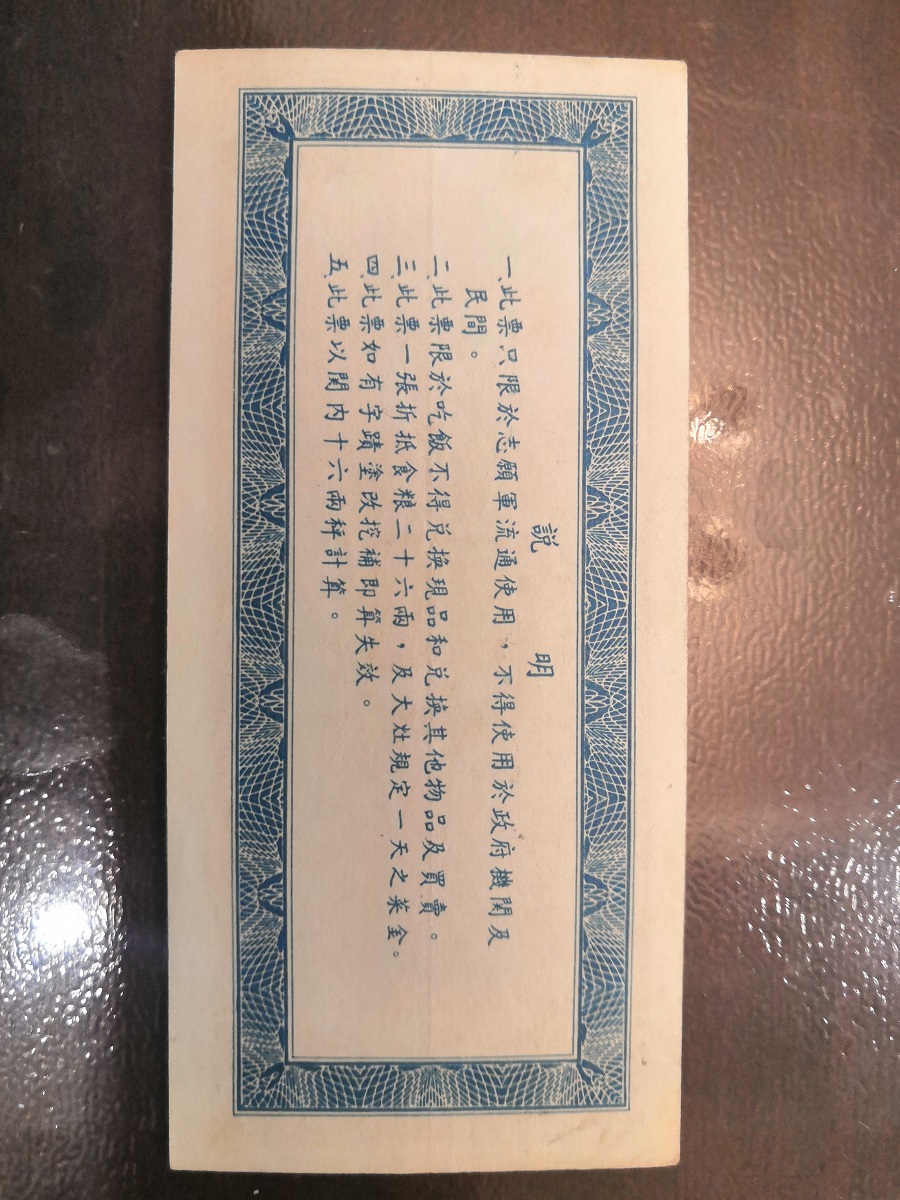 說明
一、此票只限於志願軍流通使用，不得使用於政府機関及
民間。
二、此票限於吃飯不得兑換現品和兑換其他物品及買賣。
三、此票一張折抵食粮二十六兩，及大灶規定一天之菜金。
四、此票如有字蹟塗改挖補即算失效。
五、此票以関内十六兩秤計算。